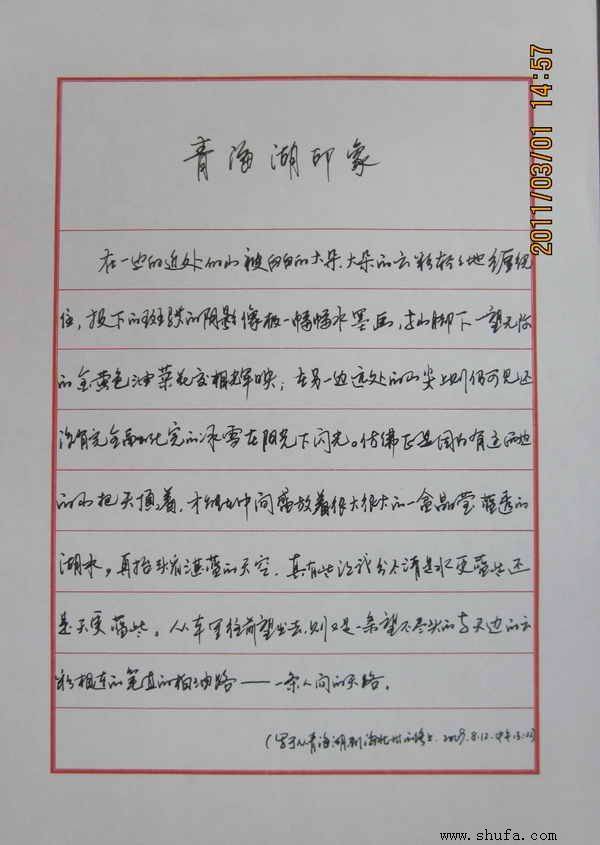 青海湖印象
在一边的近处的山被白白的大朵大朵的云彩轻轻地缠绕
住，投下的斑驳的阴影像极一幅幅水墨画，与山脚下一望无际
的金黄色油菜花交相辉映；在另一边远处的山尖上则仍可见还
没有完全融化完的冰雪在阳光下闪光。仿佛正是因为有这两边
的山把天顶着，才能在中间盛放着很大很大的一盒晶莹蓝透的
湖水，再抬头看湛蓝的天空，真有些分不清是水更蓝些还
是天更蓝些。从车里往前望出去，则又是一条望不尽头的与天边的云
彩相连的笔直的柏油路——一条人间的天路。
（写于从青海湖到的路上．2009.8.12.中午
2011/03/01 14:57
www.shufa.com